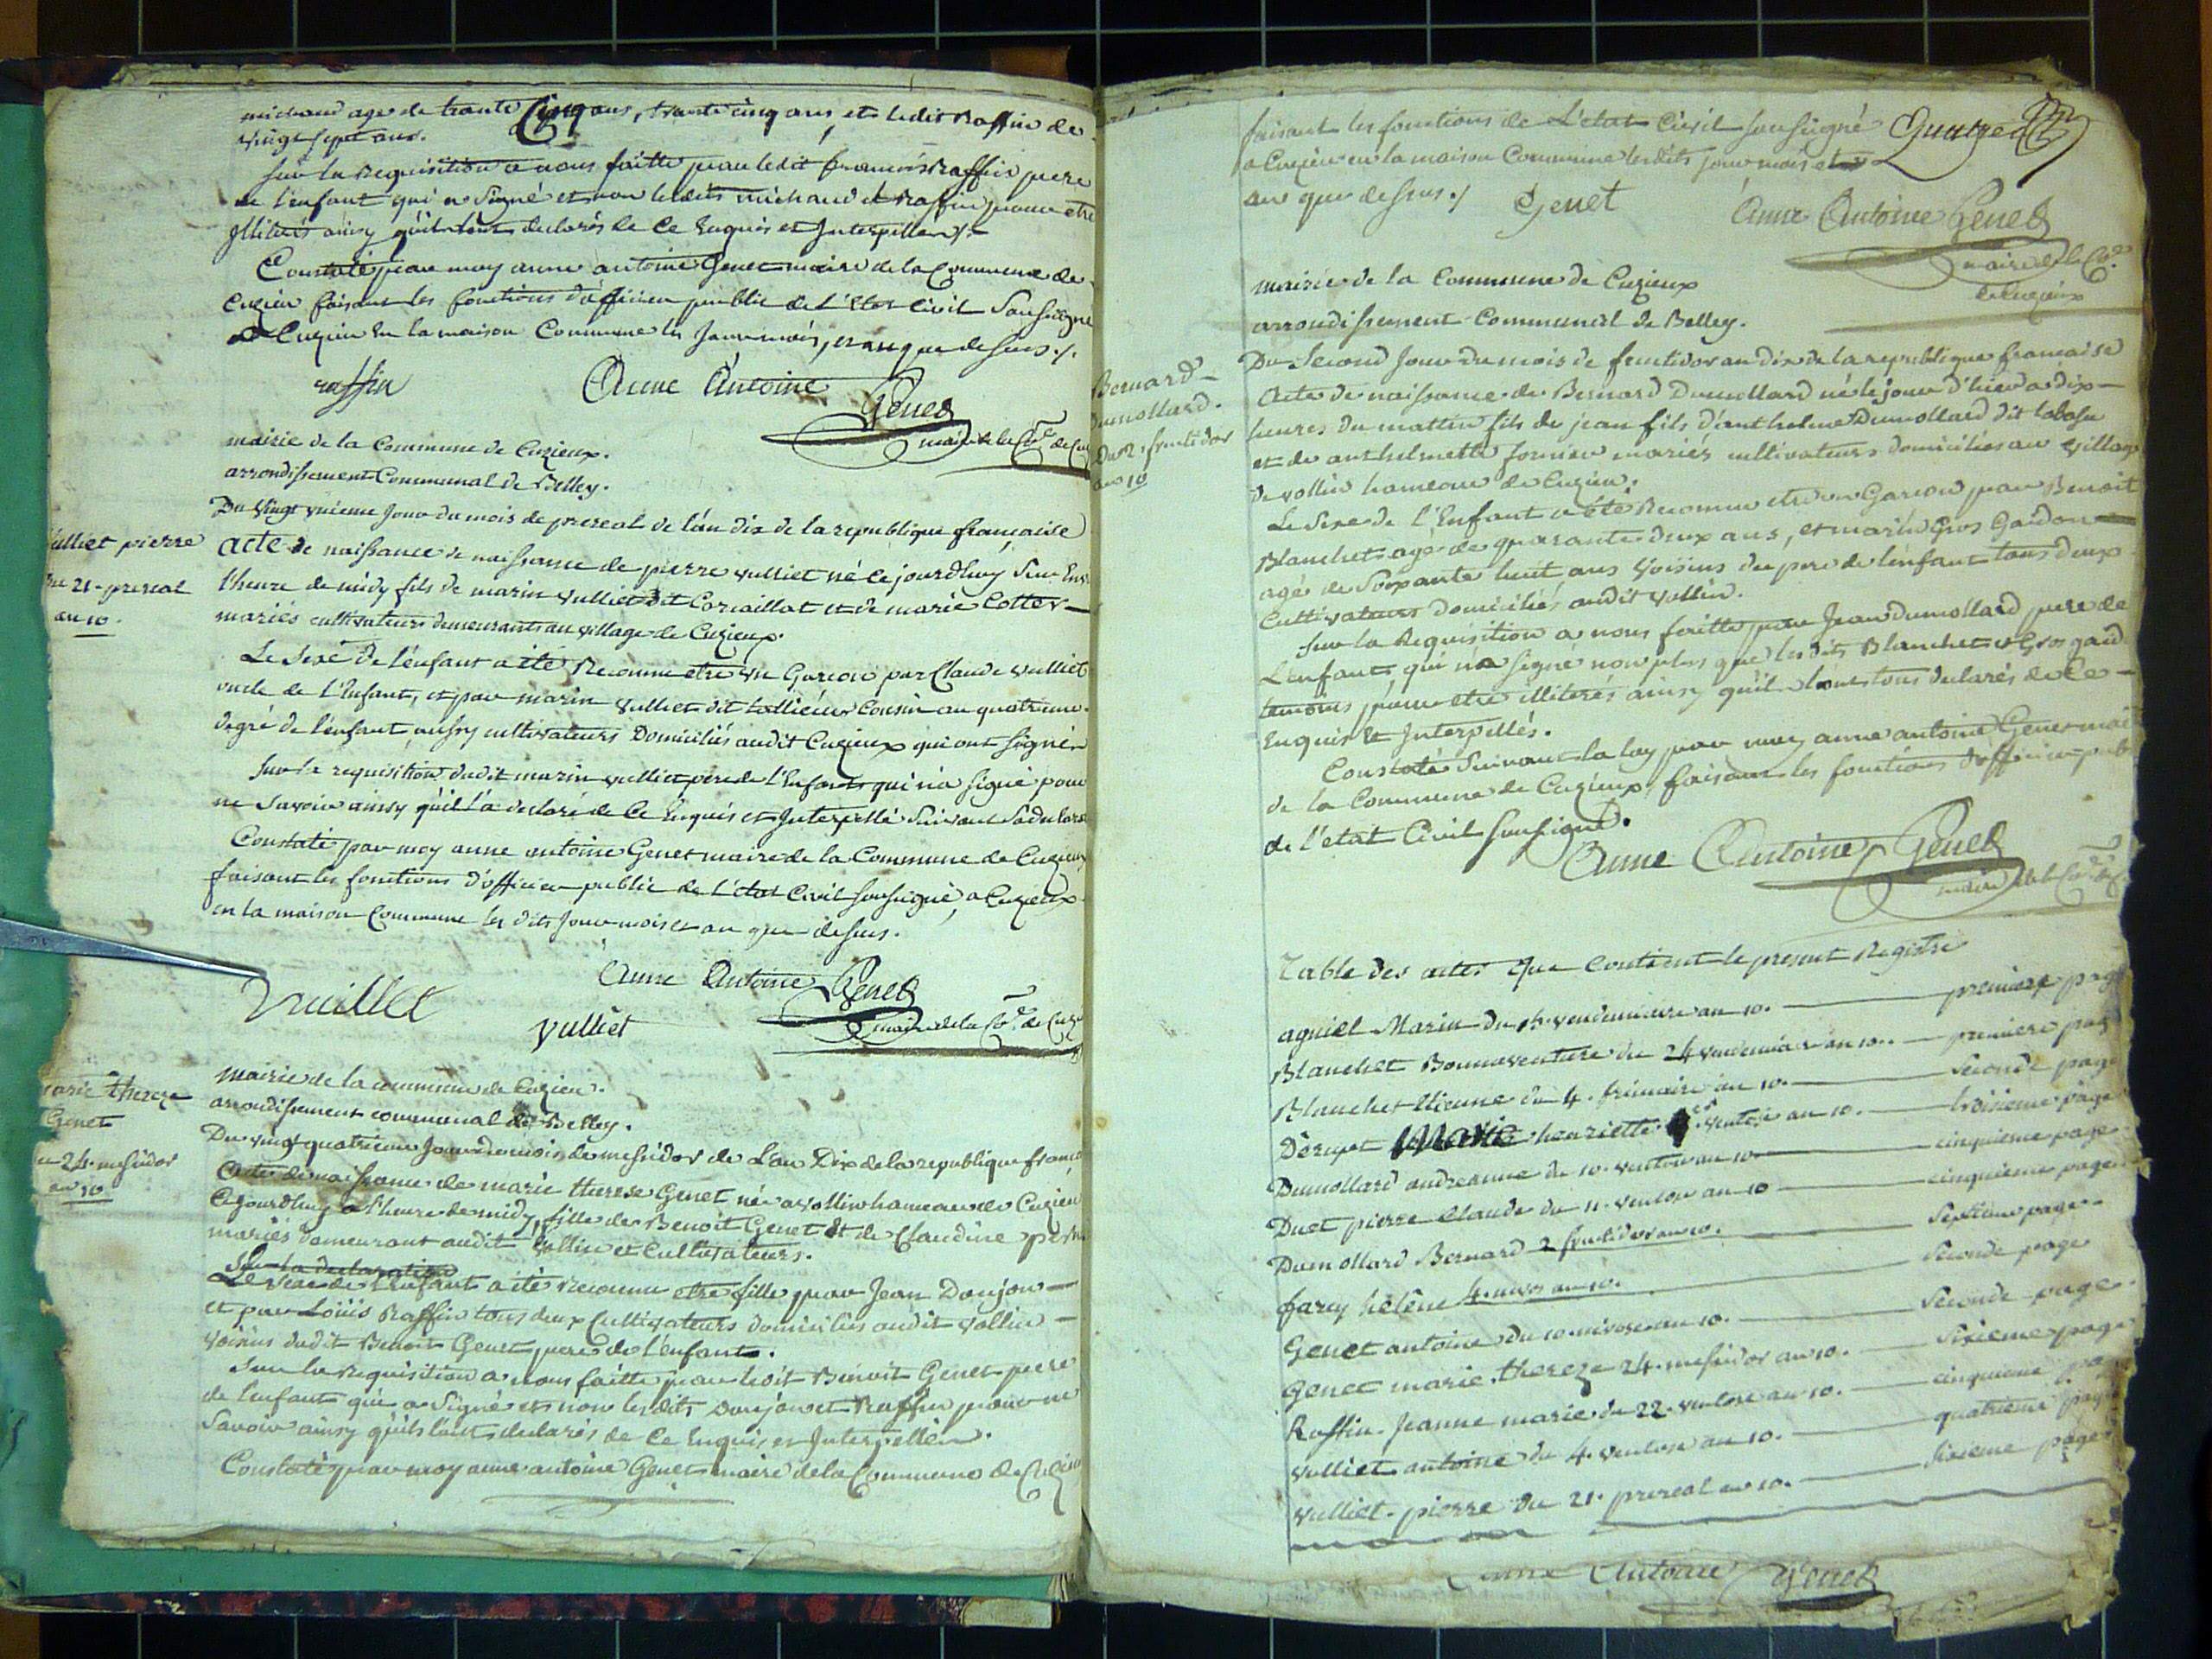 michaud age de trante Cinq ans, trante cinq ans, et ledit Raffin de
vingt sept ans.
Sur la Requisition a nous faitte par ledit francois Raffin pere
de l'enfant qui a signé et non lesdits michaud et Raffin pour etre
illiterés ainsy qu'ils l'ont declarés de ce Enquis et Interpellers ./.
Constaté par moy anne antoine Genet maire de la Commune de
Cuzieu faisant les fonctions d'officier public de l'Etat Civil Soussigné
a Cuzieu En la maison Commune les Jour mois, et an que dessus ./.
raffin
Anne Antoine
Genet
maire de la Cne de Cuz
mairie de la Commune de Cuzieux.
arrondissement Communal de Belley.
vulliet pierre
du 21 prereal
an 10.
Du Vingt unieme Jour du mois de prereal de l'an dix de la republique française
acte de naissance de naissance de pierre vulliet né cejourdhuy sur
l'heure de midy fils de marin vulliet dit Cornaillat et de marie Cotter
mariés cultivateurs demeurants au village de Cuzieux.
Le Sexe de l'enfant a été Reconnu etre un Garcon par Claude vulliet
oncle de l'Enfant, et par marin vulliet dit Cousin au quatrieme
degré de l'enfant, aussy cultivateurs Domiciliés audit Cuzieux qui ont signé
Sur la requisition dudit marin vulliet pere de l'Enfant qui n'a signé pour
ne Savoir ainsy qu'il l'a declaré de Ce Enquis et Interpellé Suivant
Constaté par moy anne antoine Genet maire de la Commune de Cuzieux
faisant les fonctions d'officier public de l'état Civil soussigné, a Cuzieux
en la maison Commune les dits Jour mois et an que dessus.
Anne Antoine Genet
Vuillet
vulliet
maire de la Cne de Cuz
marie thereze
Genet
du 24 messidor
an 10
mairie de la commune de Cuzieu.
arrondissement communal de Belley.
Du vingt quatrieme Jour du mois de messidor de L'an Dix de la republique
Acte de naissance de marie therese Genet née a vollin hameau de Cuzieu
Cejourdhuy a l'heure de midy, fille de Benoit Genet et de Claudine
mariés demeurant audit vollin et Cultivateurs.
Sur la declaration
Le Sexe de l'Enfant a été Reconnu etre fille par Jean Donjon
et par Loüis Raffin tous deux Cultivateurs domiciliés audit vollin
voisins dudit Benoit Genet pere de l'enfant.
Sur la Requisition a nous faitte par ledit Benoit Genet pere
de l'enfant qui a Signé et non lesdits Donjon et Raffin pour ne
Savoir ainsy qu'ils l'ont declarés de Ce Enquis et Interpellés.
Constaté par moy anne antoine Genet maire de la Commune de Cuzieu
faisant les fonctions de L'etat Civil soussigné
a Cuzieu en la maison Commune lesdits jour mois et
an que dessus ./. Genet
Anne Antoine Genet
maire de la Cne
de Cuzieux
mairie de la Commune de Cuzieux
arrondissement Communal de Belley.
Bernard
Dumollard.
Du 2 fructidor
an 10
Du Second Jour du mois de fructidor an dix de la republique francaise
Acte de naissance de Bernard Dumollard né le jour d'hier a dix
heures du mattin fils de jean fils d'anthelme Dumollard dit
et de anthelmette fornier mariés cultivateurs domiciliés au village
de vollin hameau de Cuzieu.
Le Sexe de l'Enfant a été Reconnu etre un Garcon par Benoit
Blanchet agé de quarante deux ans, et marin Gros Gaidon
agé de Soixante huit ans Voisins du pere de l'enfant tous deux
Cultivateurs domiciliés audit vollin.
Sur la Requisition a nous faitte par Jean Dumollard pere de
L'enfant, qui n'a signé non plus que lesdits Blanchet et Gros gaid
temoins, pour etre illiterés ainsy qu'ils l'ont tous declarés de Ce
Enquis et Interpellés.
Constaté Suivant la loy par moy anne antoine Genet mai
de la Commune de Cuzieux, faisant les fonctions d'officier pub
de l'etat Civil soussigné.
Anne Antoine Genet
maire de la Cne
Table des actes que contient le present Registre
agniel Marin du 15. vendemiaire an 10. premiere page
Blanchet Bonnaventure du 24 vendemiaire an 10.. premiere page
Blanchet Etienne du 4. frimaire an 10. Seconde page
Derupt Marie henriette ventose an 10. troisieme page
Dumollard andreanne du 10. ventose an 10 cinquieme page
Duet pierre Claude du 11. ventose an 10 cinquieme page
Dumollard Bernard 2 fructidor an 10. Septieme page
farcy hélène 4. nivos an 10. Seconde page
Genet antoine du 10. nivose an 10. Seconde page
Genet marie thereze 24. messidor an 10. Sixieme page
Raffin Jeanne marie du 22. ventose an 10. cinquieme pa
vulliet antoine du 4. ventose an 10. quatrieme page
vulliet pierre du 21. prereal an 10. Sixieme page
Anne Antoine Genet